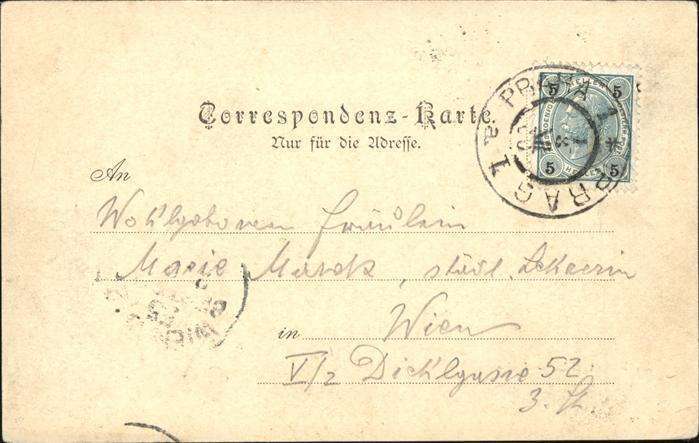 Correspondenz-Karte.
Nur für die Adresse.
PRAHA 1
PRAG 1 a
5 5
5 5
An
Wohlgeboren Fräulein
Marie Marek, städt. Lehrerin
in Wien
WIEN
V/2 Diehlgasse 52
3. St.